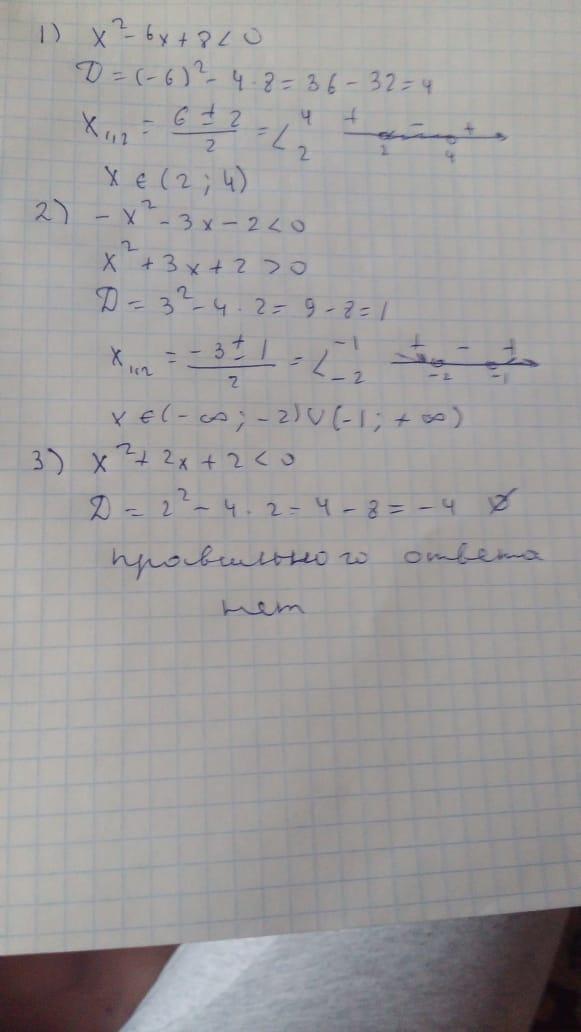 1) x² - 6x + 8 < 0
D = (-6)² - 4 · 8 = 36 - 32 = 4
x₁,₂ = (6 ± 2)/2 = < 4 2 + - + 2 4
x ∈ (2 ; 4)
2) - x² - 3x - 2 < 0
x² + 3x + 2 > 0
D = 3² - 4 · 2 = 9 - 8 = 1
x₁,₂ = (-3 ± 1)/2 = < -1 -2 + - + -2 -1
x ∈ (-∞ ; -2) ∪ (-1 ; +∞)
3) x² + 2x + 2 < 0
D = 2² - 4 · 2 = 4 - 8 = -4 ∅
правильного ответа
нет